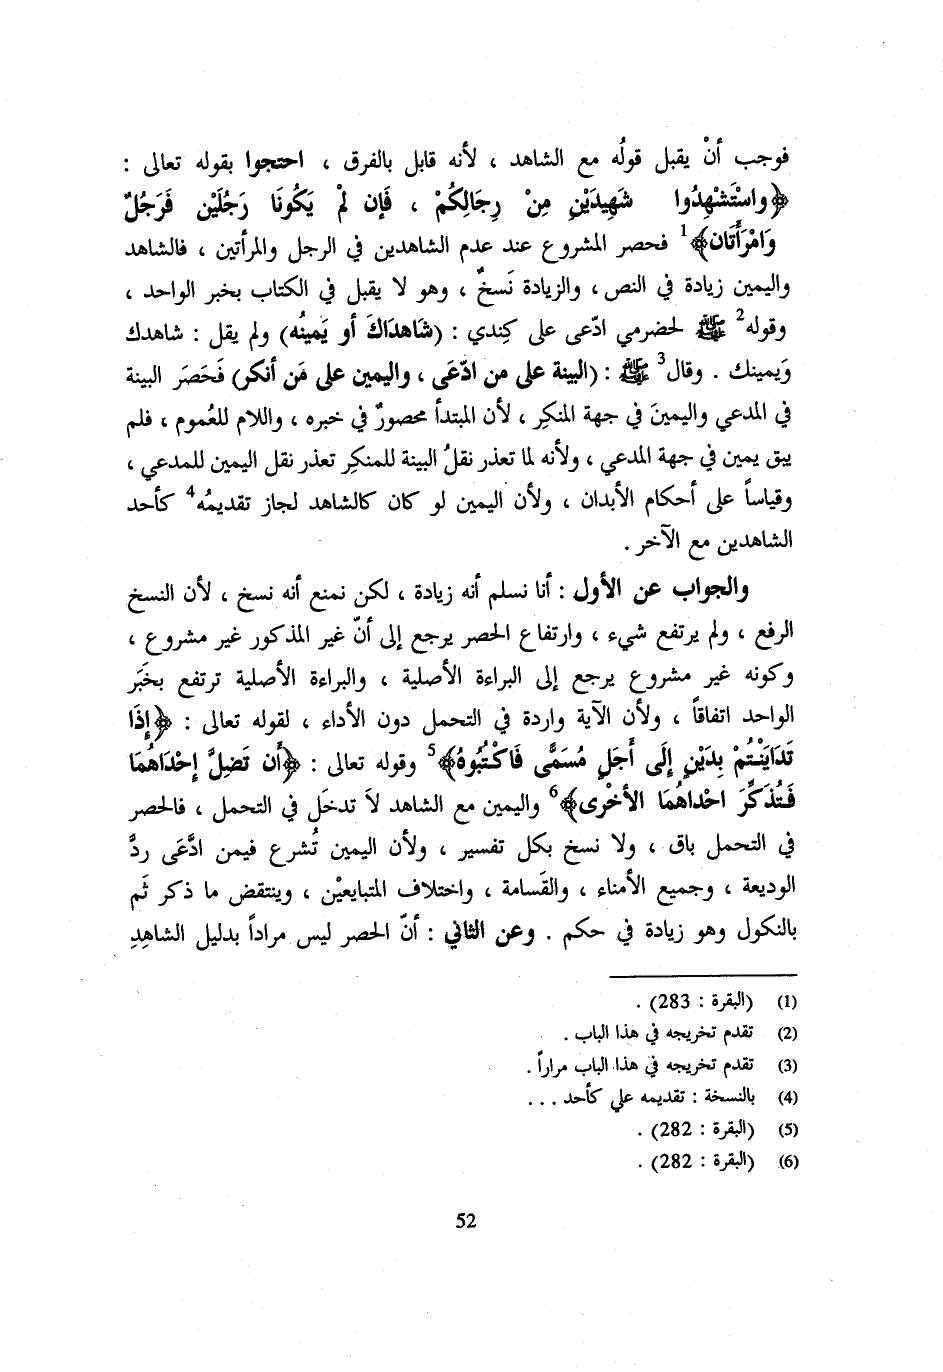 فوجب أنْ يقبل قولُه مع الشاهد ، لأنه قابل بالفرق ، احتجوا بقوله تعالى :
﴿واسْتَشْهِدُوا شَهِيدَيْنِ مِنْ رِجَالِكُمْ ، فَإن لمْ يَكُونَا رَجُلَيْن فَرَجُلٌ
وَامْرَأَتَان﴾1 فحصر المشروع عند عدم الشاهدين في الرجل والمرأتين ، فالشاهد
واليمين زيادة في النص ، والزيادة نَسخٌ ، وهو لا يقبل في الكتاب بخبر الواحد ،
وقوله2 ﷺ لحضرمي ادّعى على كِندي : (شَاهدَاكَ أو يَمينُه) ولم يقل : شاهدك
وَيمينك . وقال3 ﷺ : (البينة على من ادّعَى ، واليمين على مَن أنكر) فَحَصَر البينة
في المدعي واليمينَ في جهة المنكِر ، لأن المبتدأ محصورٌ في خبره ، واللام للعُموم ، فلم
يبق يمين في جهة المدعي ، ولأنه لما تعذر نقلُ البينة للمنكِر تعذر نقل اليمين للمدعي ،
وقياساً على أحكام الأبدان ، ولأن اليمين لو كان كالشاهد لجاز تقديمُه4 كأحد
الشاهدين مع الآخر .
والجواب عن الأول : أنا نسلم أنه زيادة ، لكن نمنع أنه نسخ ، لأن النسخ
الرفع ، ولم يرتفع شيء ، وارتفاع الحصر يرجع إلى أنّ غير المذكور غير مشروع ،
وكونه غير مشروع يرجع إلى البراءة الأصلية ، والبراءة الأصلية ترتفع بخَبَر
الواحد اتفاقاً ، ولأن الآية واردة في التحمل دون الأداء ، لقوله تعالى : ﴿إِذَا
تَدَايَنْتُمْ بِدَيْنٍ إِلَى أَجَلٍ مُسَمًّى فَاكْتُبُوهُ﴾5 وقوله تعالى : ﴿أَن تَضلَّ إحْدَاهُمَا
فَتُذَكِّرَ احْداهُمَا الأخْرى﴾6 واليمين مع الشاهد لاَ تدخَل في التحمل ، فالحصر
في التحمل باق ، ولا نسخ بكل تفسير ، ولأن اليمين تُشرع فيمن ادَّعَى ردَّ
الوديعة ، وجميع الأمناء ، والقَسامة ، واختلاف المتبايعيْن ، وينتقض ما ذكر ثَم
بالنكول وهو زيادة في حكم . وعن الثاني : أنّ الحصر ليس مراداً بدليل الشاهِدِ
(1) (البقرة : 283) .
(2) تقدم تخريجه في هذا الباب .
(3) تقدم تخريجه في هذا الباب مراراً .
(4) بالنسخة : تقديمه علي كأحد . . .
(5) (البقرة : 282) .
(6) (البقرة : 282) .
52